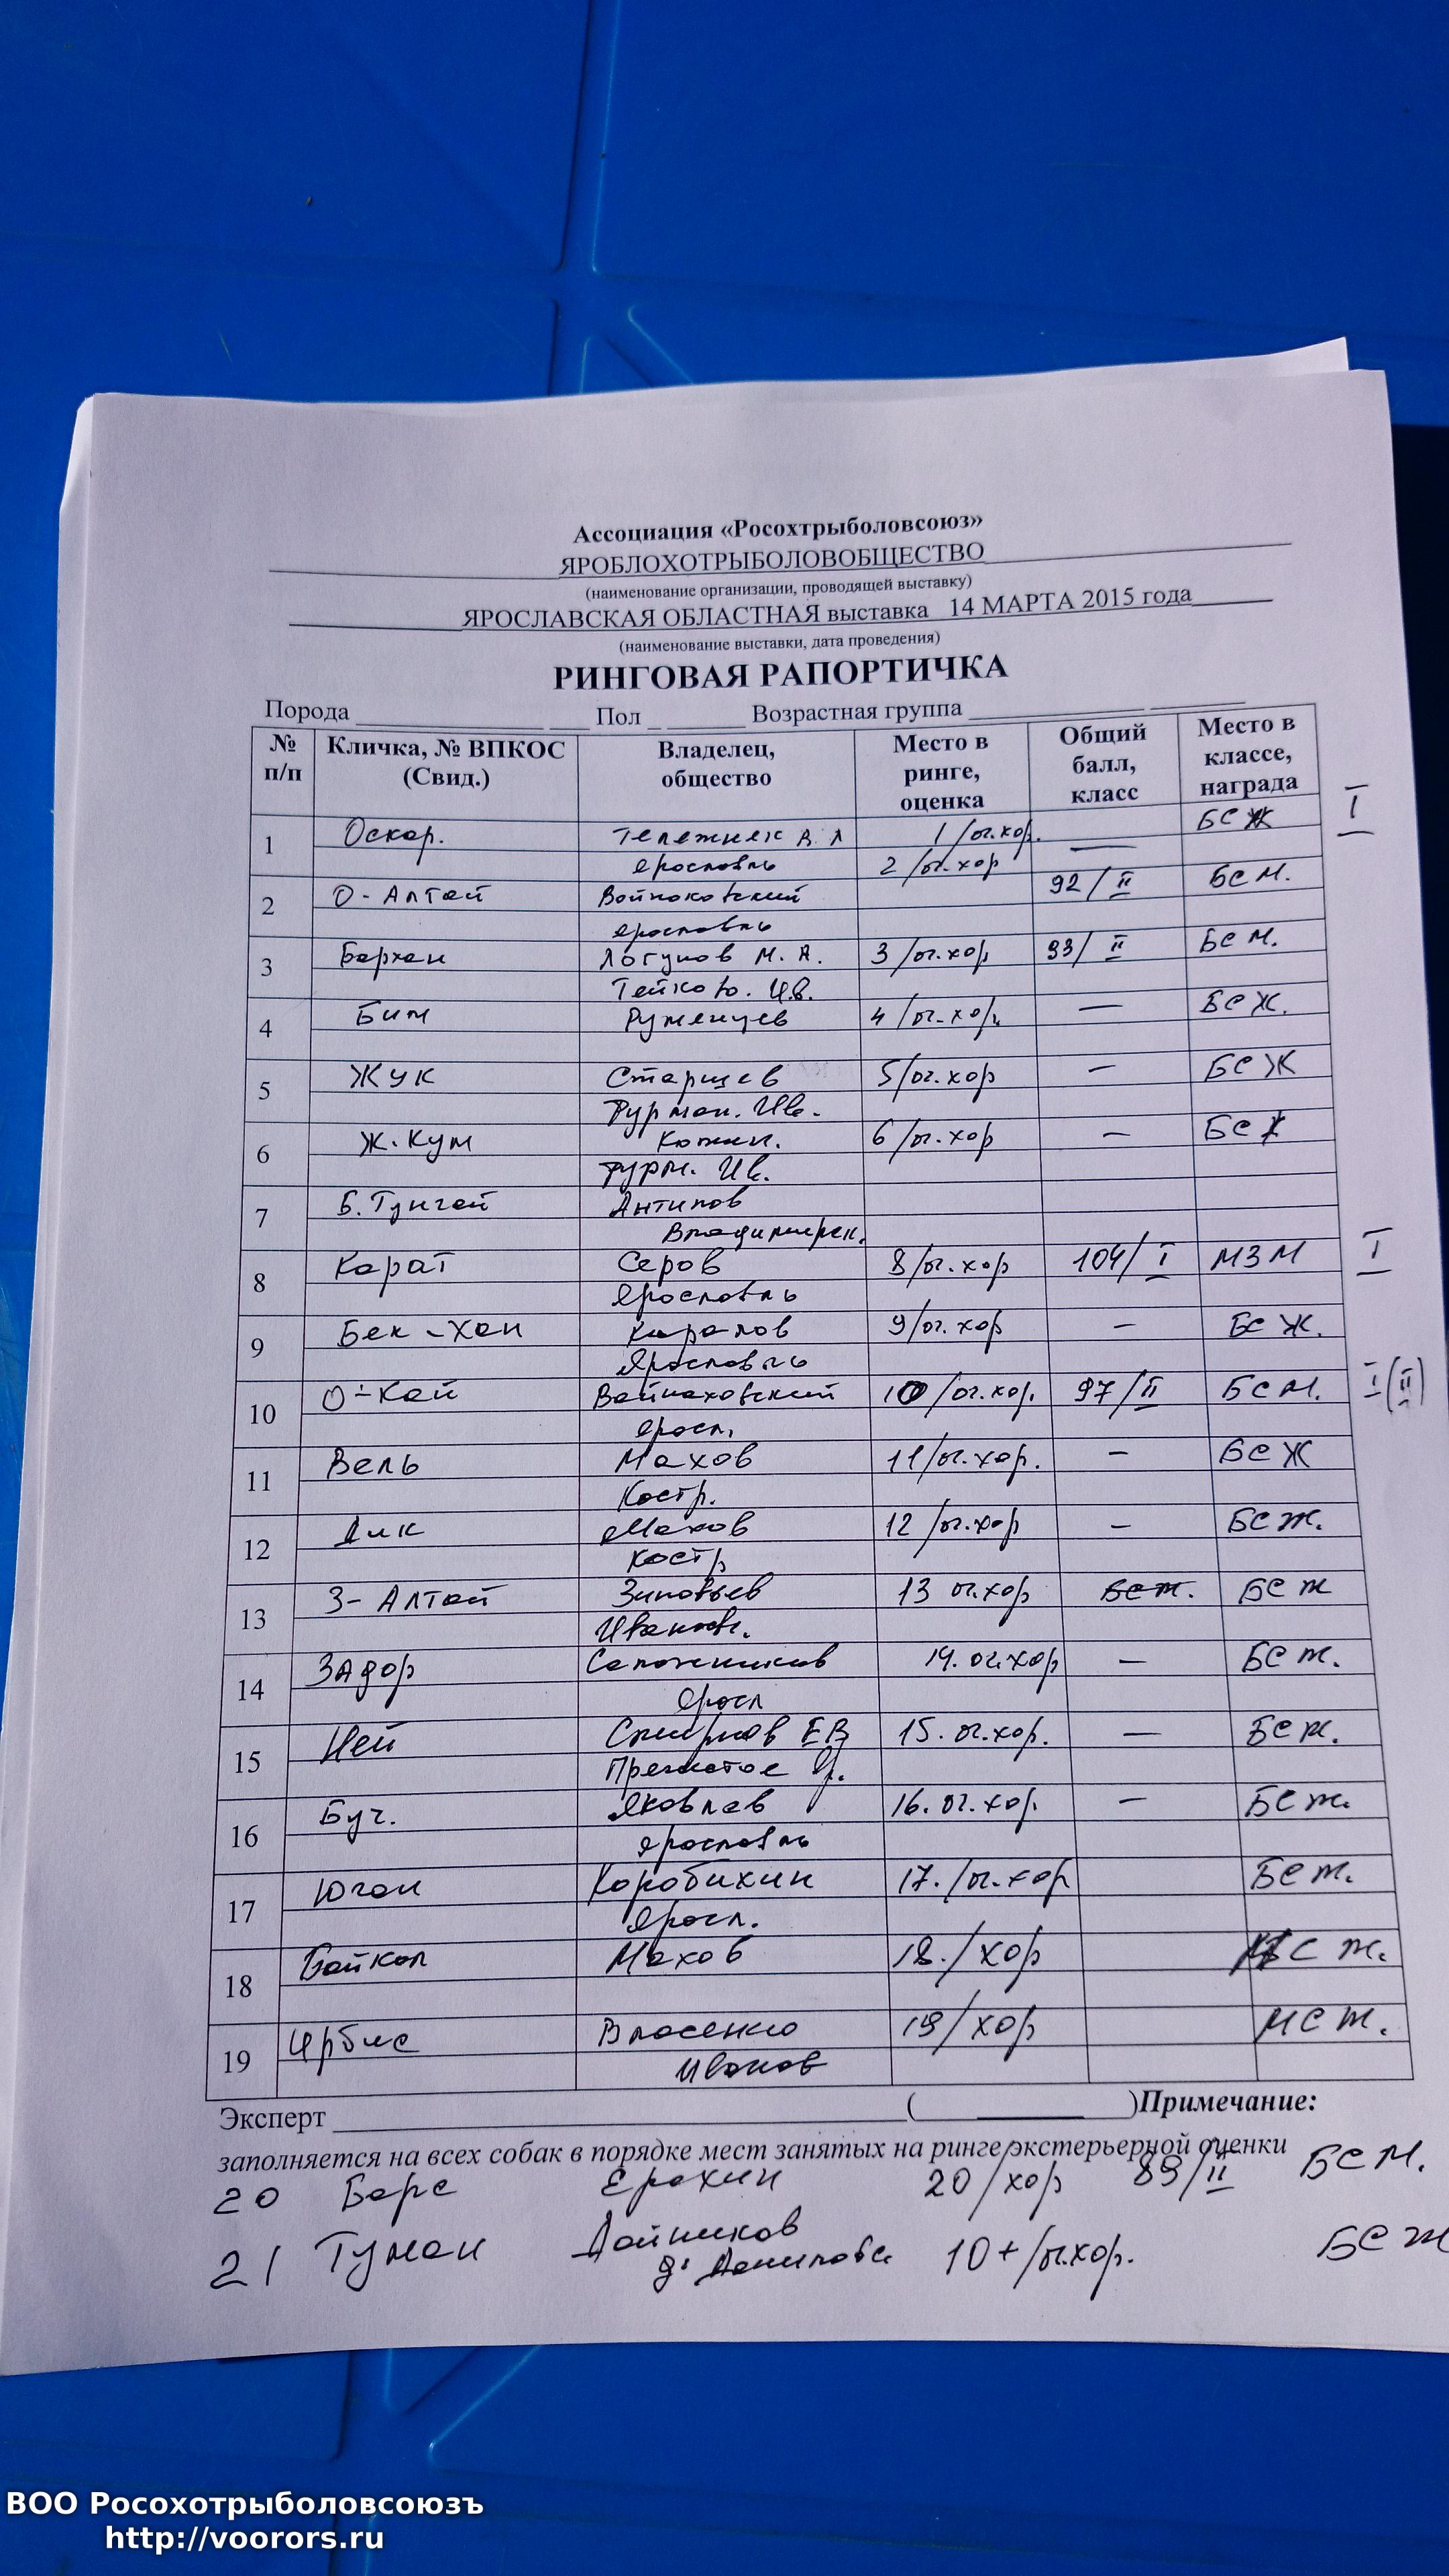 Ассоциация «Росохтрыболовсоюз»
ЯРОБЛОХОТРЫБОЛОВОБЩЕСТВО
(наименование организации, проводящей выставку)
ЯРОСЛАВСКАЯ ОБЛАСТНАЯ выставка 14 МАРТА 2015 года
(наименование выставки, дата проведения)
РИНГОВАЯ РАПОРТИЧКА
Порода Пол Возрастная группа
№ п/п Кличка, № ВПКОС (Свид.) Владелец, общество Место в ринге, оценка Общий балл, класс Место в классе, награда
1 Оскар. Тележняк 1/оч.хор. — БСЖ I
Ярославль
2 О-Алтай Войнаковский 2/оч.хор 92/II БСМ.
Ярославль
3 Бархан Логунов М.А. 3/оч.хор 93/II БСМ.
Тейково. Ив.
4 Бим Румянцев 4/оч.хор. — БСЖ.
5 Жук Старцев 5/оч.хор — БСЖ
Фурман. Ив.
6 Ж.Кум 6/оч.хор — БСЖ
Фурм. Ив.
7 Б.Тунгай Антипов
Владимирск.
8 Карат Серов 8/оч.хор 104/I МЗМ I
Ярославль
9 Бек-Хан 9/оч.хор — БСЖ.
Ярославль
10 О-Кай 10/оч.хор. 97/II БСМ. I(II)
Яросл.
11 Вель Махов 11/оч.хор. — БСЖ
Костр.
12 Дик Махов 12/оч.хор — БСЖ.
Костр
13 З-Алтай Зиновьев 13 оч.хор БСЖ. БСЖ
Иванов.
14 Задор Сапожников 14. оч.хор — БСЖ.
Яросл
15 Ней Смирнов ЕВ 15. оч.хор. — БСЖ.
Пречистое
16 Буч. Яковлев 16. оч.хор. — БСЖ.
Ярославль
17 Юган Коробихин 17./оч.хор БСЖ.
Яросл.
18 Байкал Махов 18./хор МСЖ.
19 Ирбис Власенко 19/хор МСЖ.
Иванов
Эксперт ( ) Примечание:
заполняется на всех собак в порядке мест занятых на ринге экстерьерной оценки
20 Барс Ерохин 20/хор 89/II БСМ.
21 Туман Дойников 10+/оч.хор. БСЖ
г. Данилов
ВОО Росохотрыболовсоюзъ
http://voorors.ru